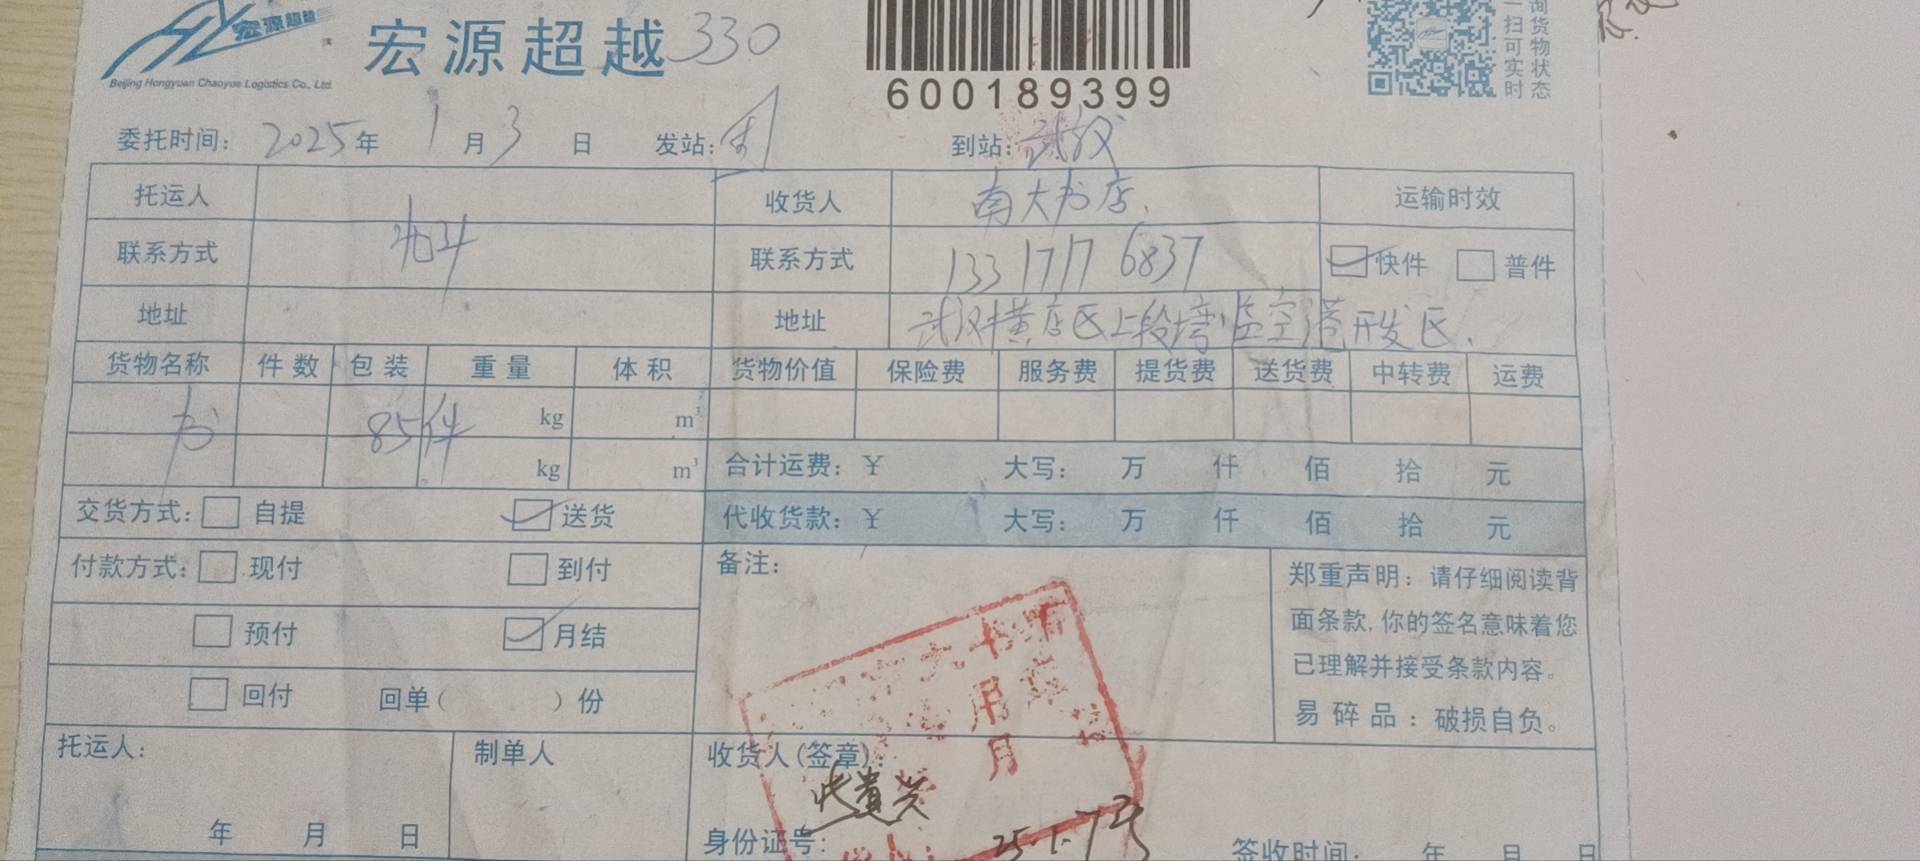 宏源超越
Beijing Hongyuan Chaoyue Logistics Co., Ltd.
宏源超越 330
600189399
询货物状态
一扫可实时
委托时间: 2025年 1月 3日 发站: 到站: 武汉
托运人 收货人 南大书店. 运输时效
联系方式 联系方式 133 1717 6837 快件 普件
地址 地址 武汉横店区上段塆临空港开发区.
货物名称 件数 包装 重量 体积 货物价值 保险费 服务费 提货费 送货费 中转费 运费
书 85件 kg m³
kg m³ 合计运费: ¥ 大写: 万 仟 佰 拾 元
交货方式: 自提 送货 代收货款: ¥ 大写: 万 仟 佰 拾 元
付款方式: 现付 到付 备注:
预付 月结
回付 回单( )份
郑重声明: 请仔细阅读背
面条款,你的签名意味着您
已理解并接受条款内容。
易碎品: 破损自负。
托运人: 制单人 收货人(签章):
年 月 日 身份证号: 签收时间: 年 月 日